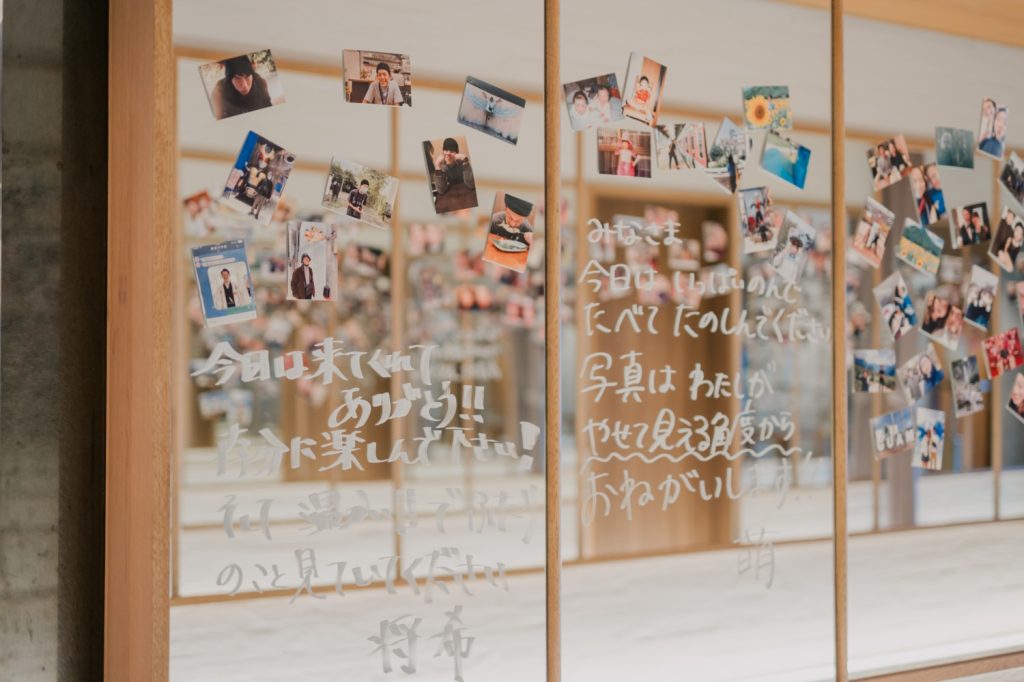 今日は来てくれて
ありがとう!!
存分に楽しんで下さい!
そして 温かい目で ふたり
のこと見ていてください
将希
みなさま
今日は いっぱいのんで
たべて たのしんでください
写真は わたしが
やせて見える角度から
おねがいします!!
萌